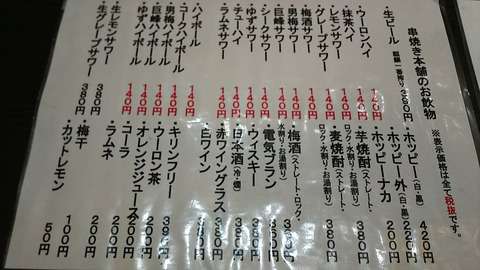 串焼き本舗のお飲物
※表示価格は全て税抜です。
・生ビール 麒麟一番搾り 250円
・ウーロンハイ 140円
・抹茶ハイ 140円
・レモンサワー 140円
・グレープサワー 140円
・梅酒サワー 140円
・男梅サワー 140円
・巨峰サワー 140円
・シークサワー 140円
・ゆずサワー 140円
・チューハイ 140円
・ラムネサワー 140円
・ハイボール 140円
・コークハイボール 140円
・男梅ハイボール 140円
・巨峰ハイボール 140円
・ゆずハイボール 140円
・生レモンサワー 380円
・生グレープサワー 380円
・ホッピー(白・黒) 420円
・ホッピー外(白・黒) 220円
・ホッピーナカ 200円
・芋焼酎(ストレート・ロック・水割り・お湯割り)
・麦焼酎(ストレート・ロック・水割り・お湯割り)
・梅酒(ストレート・ロック・水割り・お湯割り)
・電気ブラン
・ウィスキー
・日本酒(冷・燗)
・赤ワイングラス
・白ワイン
・キリンフリー
・ウーロン茶 200円
・オレンジジュース 200円
・コーラ 200円
・ラムネ 200円
・梅干 100円
・カットレモン 50円